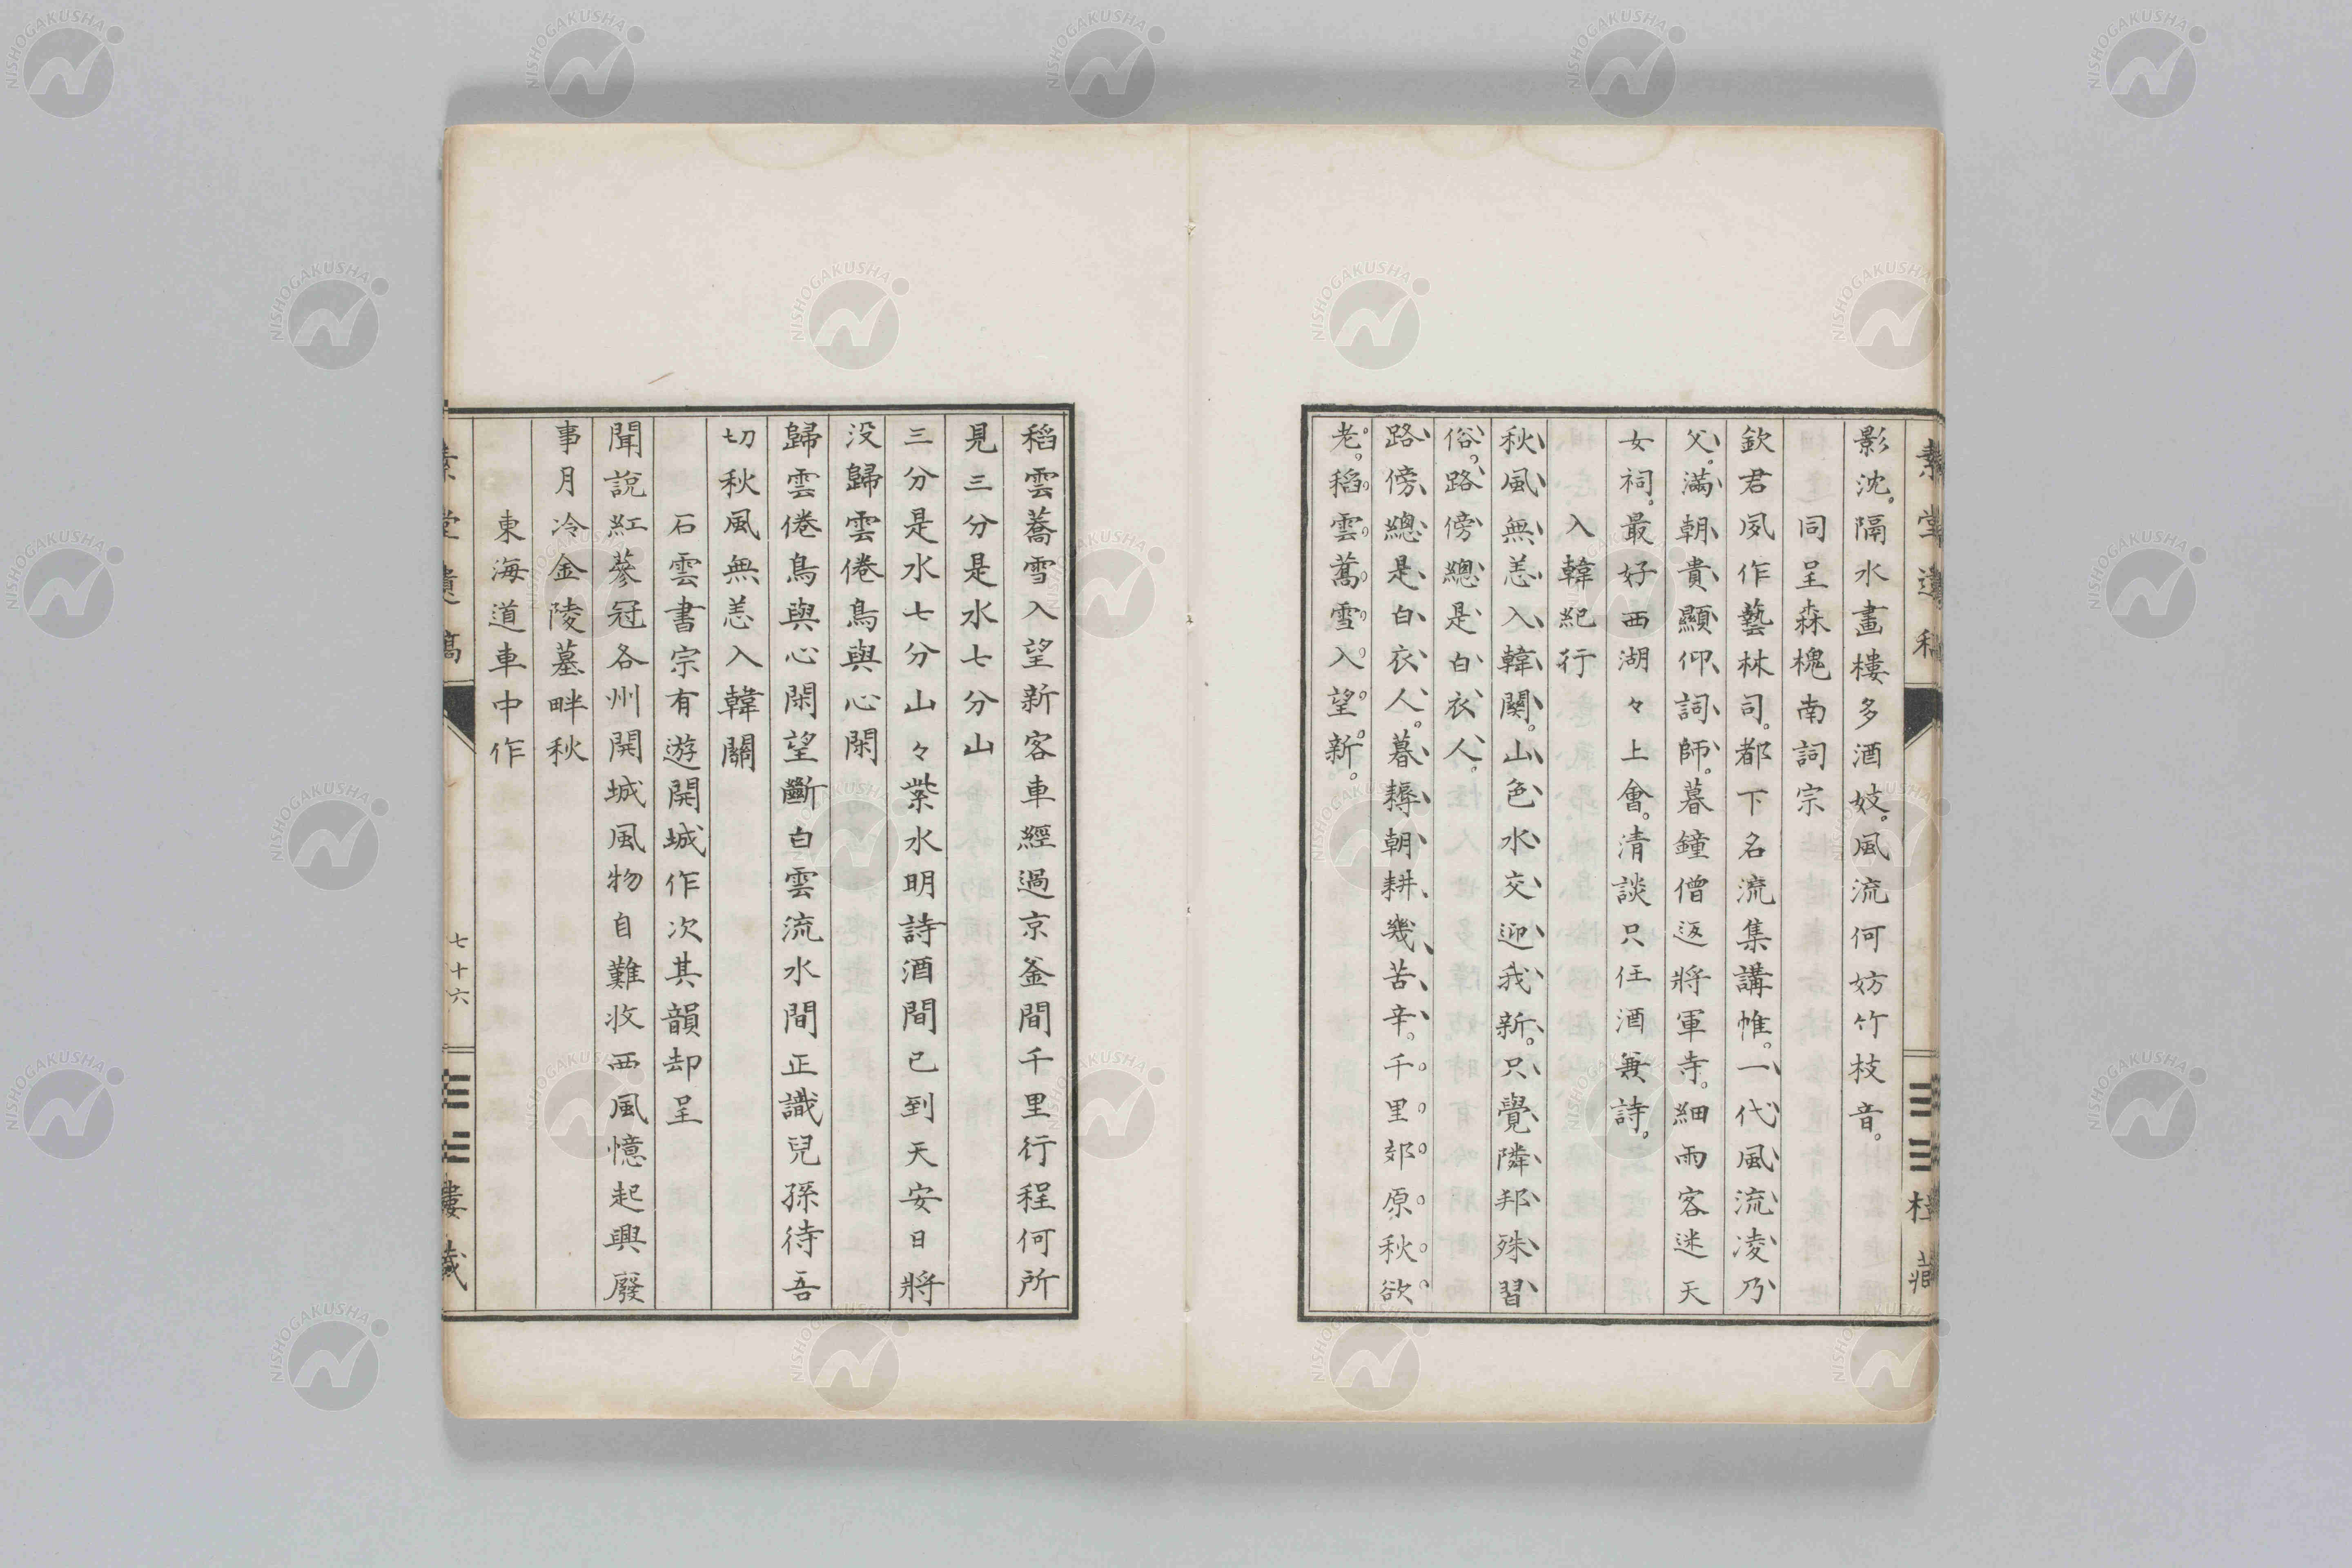 素堂遺稿
影沈。隔水畫樓多酒妓。風流何妨竹枝音。
同呈森槐南詞宗
欽君夙作藝林司。都下名流集講帷。一代風流凌乃
父。滿朝貴顯仰詞師。暮鐘僧返將軍寺。細雨客迷天
女祠。最好西湖々上會。清談只任酒兼詩。
入韓紀行
秋風無恙入韓關。山色水交迎我新。只覺隣邦殊習
俗。路傍總是白衣人。
路傍總是白衣人。暮耨朝耕幾苦辛。千里郊原秋欲
老。稻雲蕎雪入望新。
稻雲蕎雪入望新客車經過京釜間千里行程何所
見三分是水七分山
三分是水七分山々紫水明詩酒間已到天安日將
没歸雲倦鳥與心閑
歸雲倦鳥與心閑望斷白雲流水間正識兒孫待吾
切秋風無恙入韓關
石雲書宗有遊開城作次其韻却呈
聞說紅蔘冠各州開城風物自難收西風憶起興廢
事月冷金陵墓畔秋
東海道車中作
七十六
樓藏
NISHOGAKUSHA